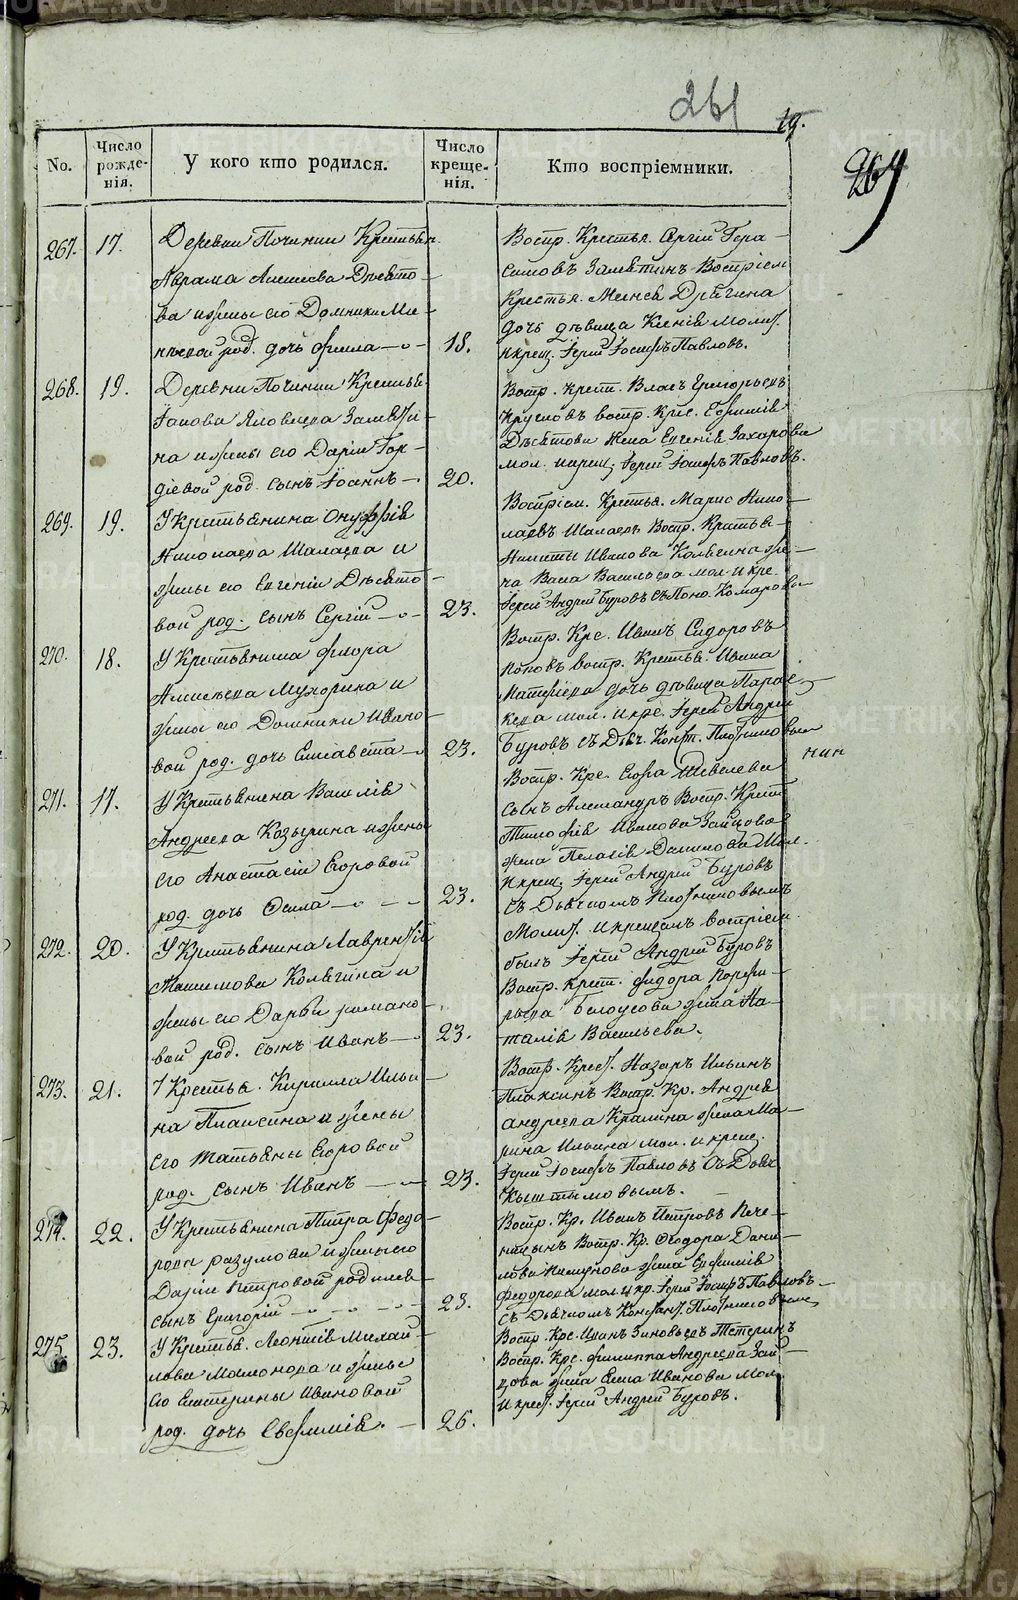 261
19.
264
No.
Число рожде-нія.
У кого кто родился.
Число креще-нія.
Кто воспріемники.
267. 17.
Деревни Починки Крестьян.
Аврама Алексеева Дѣвято-
ва и жены его Домники Ми-
род. дочь Фекла 18.
Воспр. Крестья. Сергій Гера-
симовъ Замятинъ Воспріем
Крестья. Моисея
дочь дѣвица Ксенія Молит.
и крещ. Іерей Іосифъ Павловъ.
268. 19.
Деревни Починки Крестья
Іакова Яковлева Замяти-
на и жены его Даріи Гор-
діевой род. сынъ Іоаннъ 20.
Воспр. крест. Власъ Григорьевъ
Кругловъ воспр. Крес. Ефимія
Дѣвятова жена Евгенія Захарова
мол. и крещ. Іерей Іосифъ Павловъ.
269. 19.
У Крестьянина Онуффрія
Николаева Шалаева и
жены его Евгеніи Дѣвято-
вой род. сынъ Сергій 23.
Воспріем. Крестья. Марко Нико-
лаевъ Шалаевъ Воспр. Крестья-
Никиты Иванова
Васса Васильева мол. и кре.
Іерей Андрей Буровъ съ Поно. Комаровы
270. 18.
У Крестьянина Флора
Алексеева Мухорина и
жены его Домники Ивано-
вой род. дочь Елисавета 23.
Воспр. Кре. Иванъ Сидоровъ
Поповъ воспр. Крестья. Ивана
Матфіева дочь дѣвица Парас-
кева мол. и кре. Іерей Андрей
Буровъ съ Дьяч. Конст. Плотниковым
271. 17.
У Крестьянина Василія
Андреева Козырина и жены
его Анастасіи Егоровой
род. дочь 23.
Воспр. Кре. Егора Шевелева
сынъ Александръ Воспр. Крест
Тимофія Иванова Зайцова
жена Пелагія Данилова Мол.
и крещ. Іерей Андрей Буровъ
съ Дьячкомъ Плотниковымъ
272. 20.
У Крестьянина Лаврентія
Максимова и
жены его Дарьи Романо-
вой род. сынъ Иванъ 23.
Молит. и крещеніи воспріем.
былъ Іерей Андрей Буровъ
Воспр. крест. Фидора Порфи-
рьева Белоусова жена На-
талія Васильева.
273. 21.
У Крестья. Кирилла Ильи-
на Плаксина и жены
его Татьяны Егоровой
род. сынъ Иванъ 23.
Воспр. Крест. Назаръ Ильинъ
Плаксинъ Воспр. Кр. Андрея
Андреева жена Ма-
рина Ильина мол. и крещ.
Іерей Іосифъ Павловъ съ Дьяч
Кыштымовымъ.
274. 22.
У Крестьянина Петра Федо-
рова Разумова и жены его
Даріи Петровой родился
сынъ Григорій 23.
Воспр. Кр. Иванъ Петровъ Пече-
нцынъ Воспр. Кр. Феодора Дани-
лова жена Евфимія
Федорова мол. и кр. Іерей Іосифъ Павловъ
съ Дьячкомъ Констант. Плотниковымъ
275. 23.
У Крестья. Леонтія Михай-
лова и жены
его Екатерины Ивановой
род. дочь Евфимія. 26.
Воспр. Кре. Иванъ Зиновьевъ Тетеринъ
Воспр. Кре. Филиппа Андреева Зай-
цова жена Елена Иванова Мол.
и крест. Іерей Андрей Буровъ.
METRIKI.GASO-URAL.RU